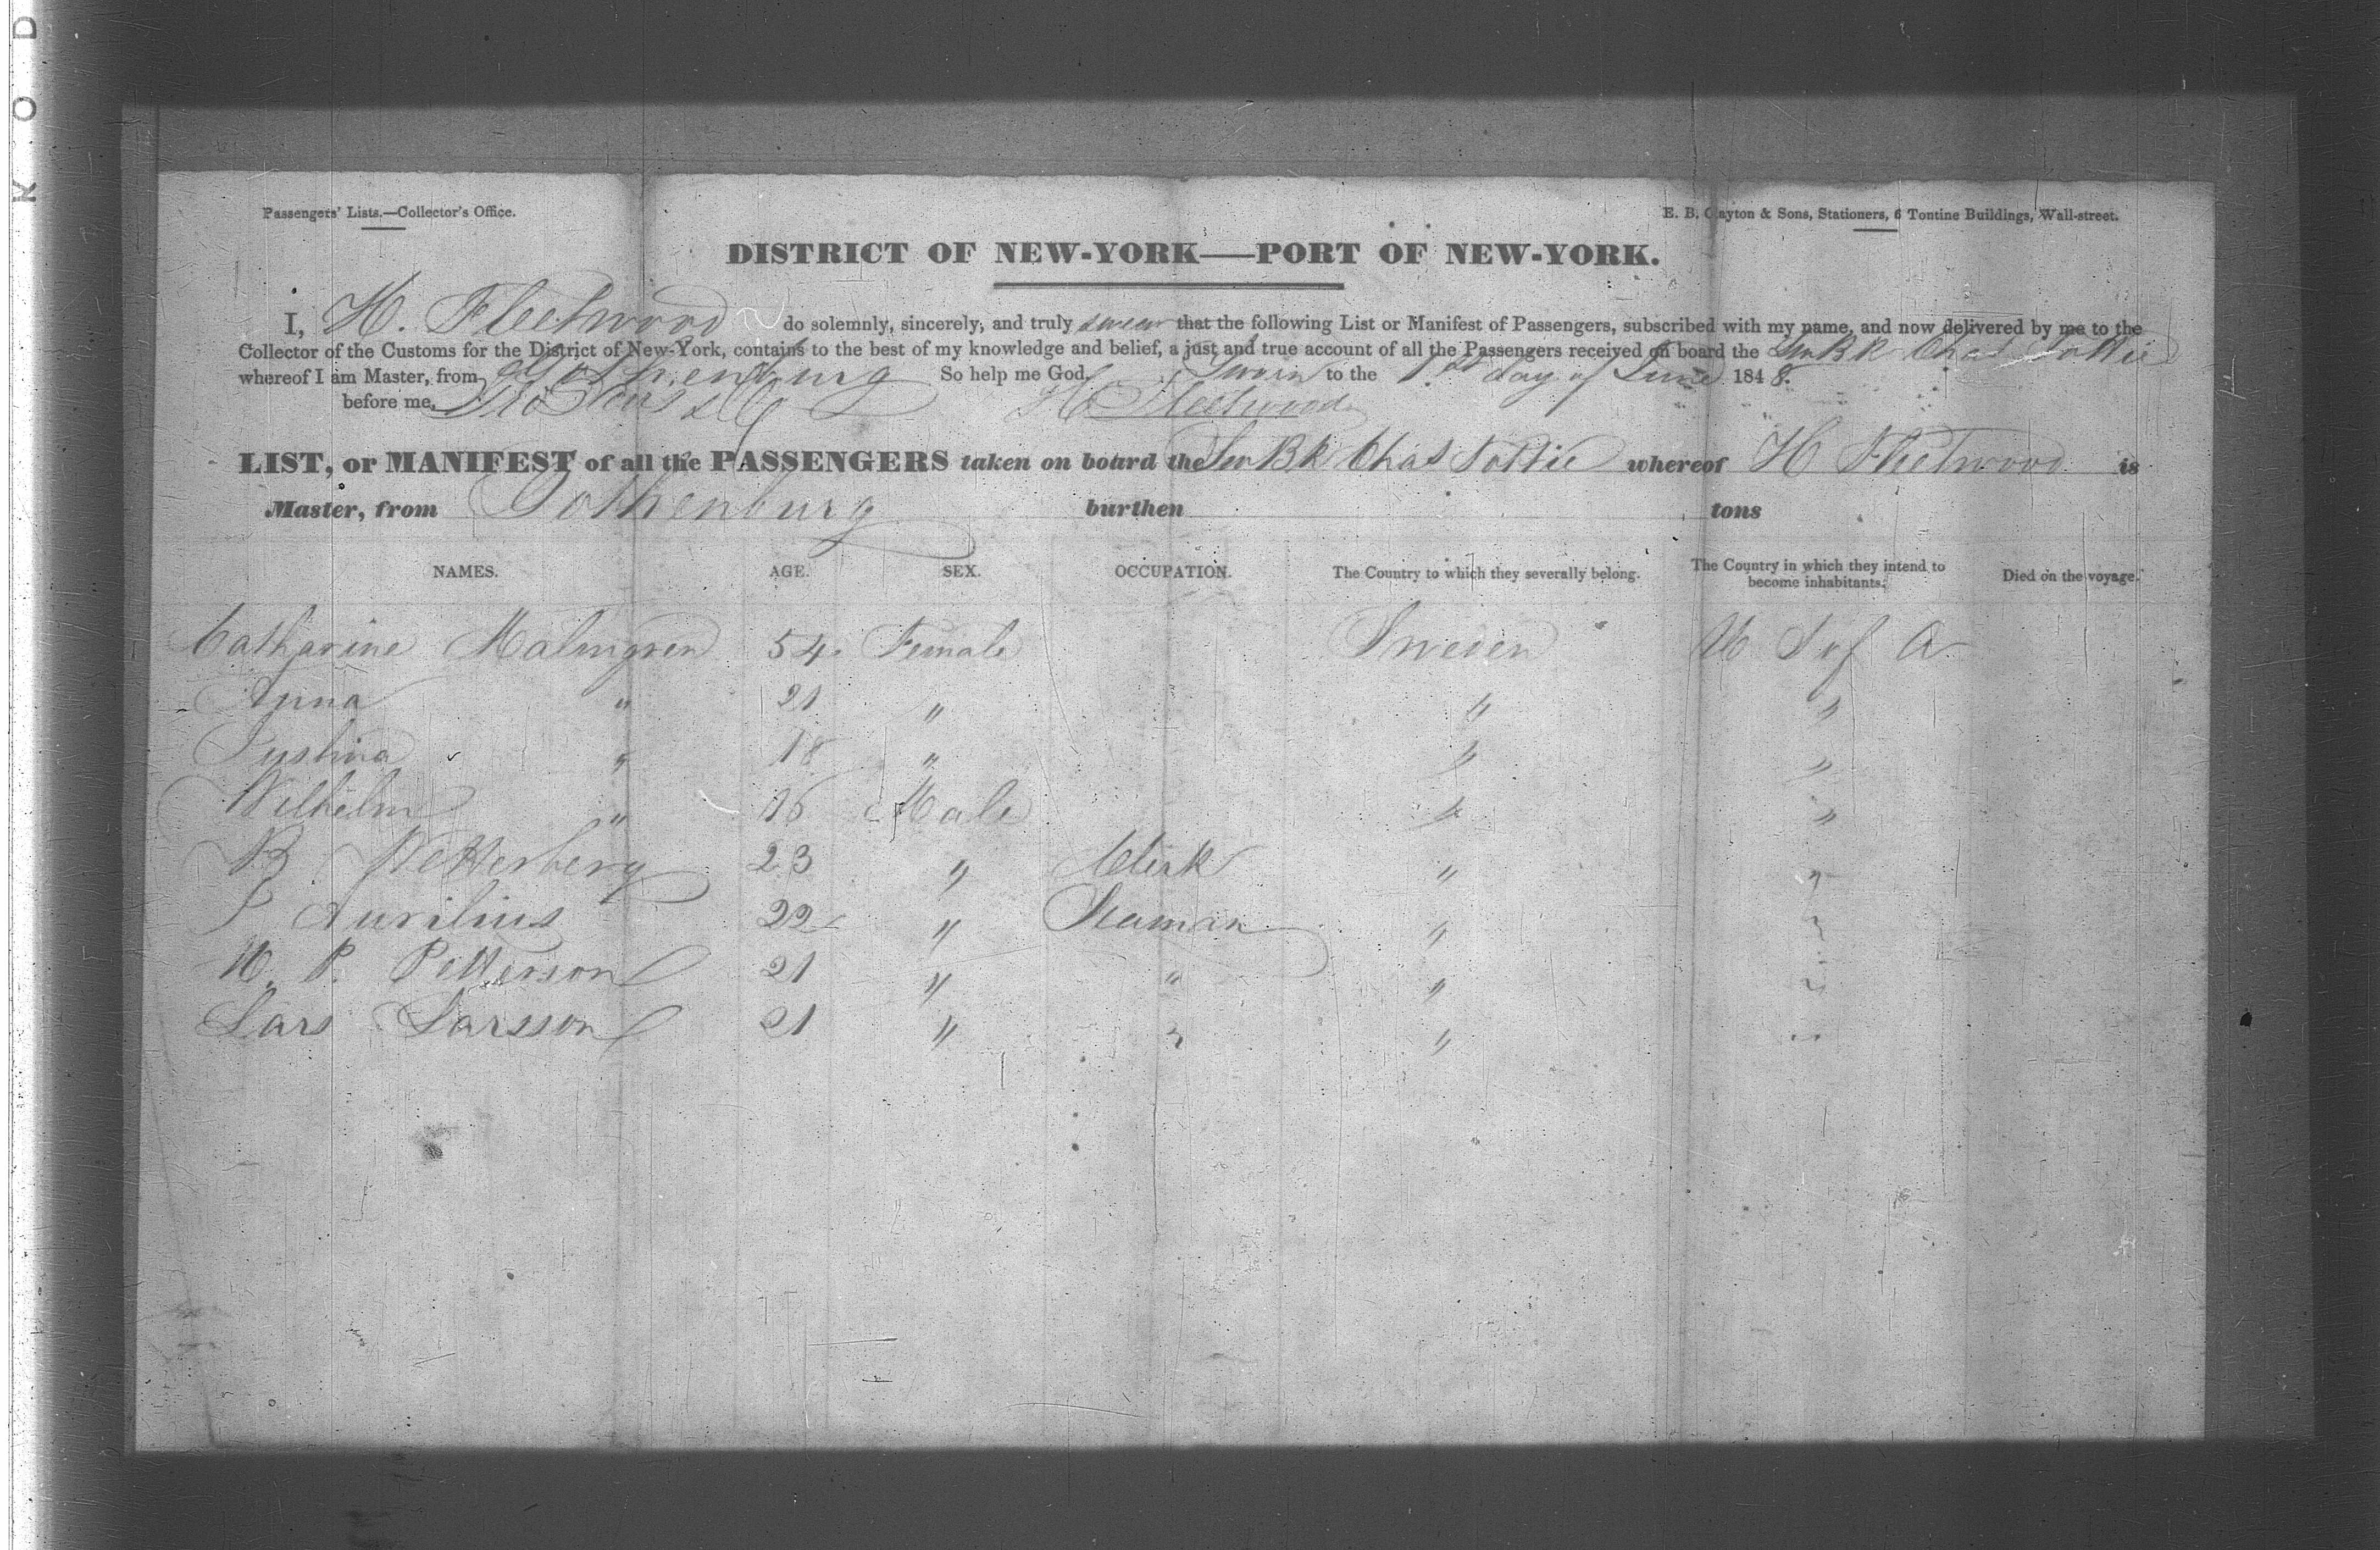 Passengers' Lists.—Collector's Office.
E. B. Clayton & Sons, Stationers, 6 Tontine Buildings, Wall-street.
DISTRICT OF NEW-YORK—PORT OF NEW-YORK.
I, H. Fleetwood do solemnly, sincerely, and truly swear that the following List or Manifest of Passengers, subscribed with my name, and now delivered by me to the
Collector of the Customs for the District of New-York, contains to the best of my knowledge and belief, a just and true account of all the Passengers received on board the Sw Bk Chas Tottie
whereof I am Master, from Gothenburg So help me God. Sworn to the 1st day of June 1848.
before me, H Fleetwood
LIST, or MANIFEST of all the PASSENGERS taken on board the Sw Bk Chas Tottie whereof H Fleetwood is
Master, from Gothenburg burthen tons
NAMES. AGE. SEX. OCCUPATION. The Country to which they severally belong. The Country in which they intend to become inhabitants. Died on the voyage.
Catharine Malmgren 54. Female Sweden U S of A
Anna " 21 " " "
Justina " 18 " " "
Wilhelm " 16 Male " "
B Wetterberg 23 " Clerk " "
J Aurilius 22 " Seaman " "
M. P. Petterson 21 " " " "
Lars Larsson 21 " " " "